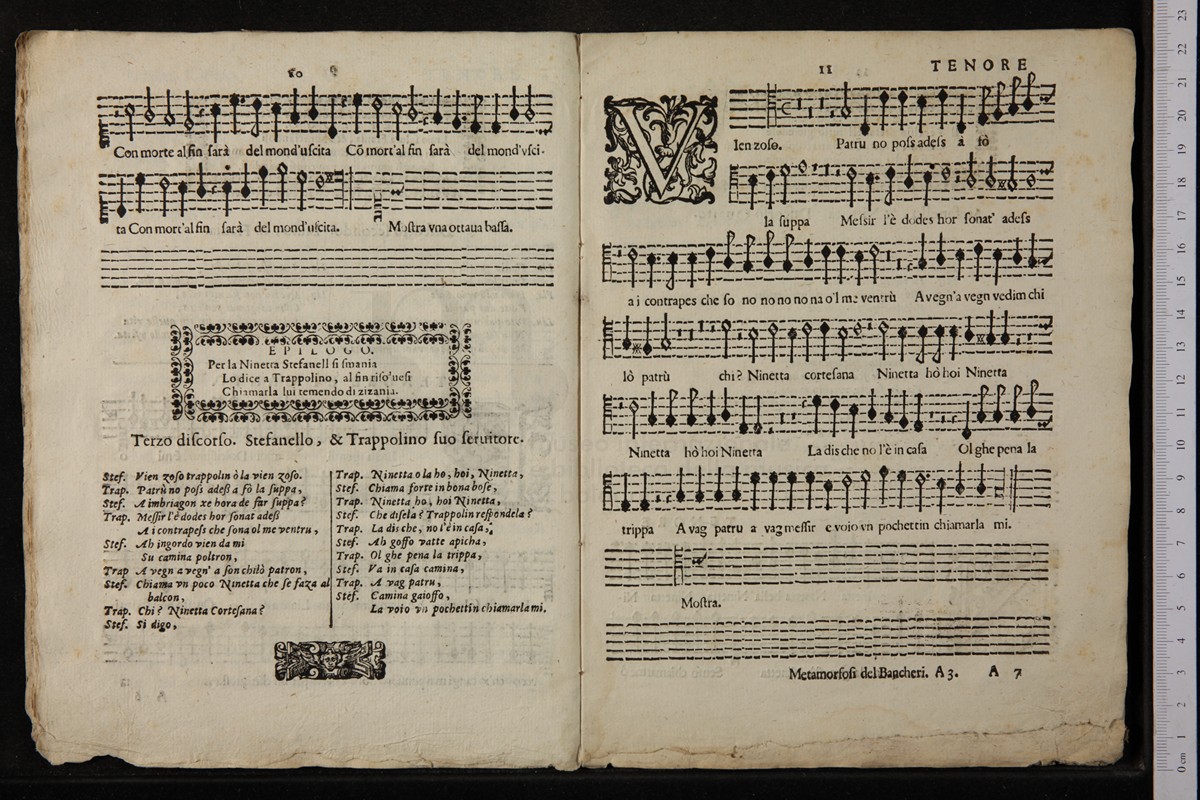 10
Con morte al fin sarà del mond'uscita Cõ mort'al fin sarà del mond'vsci-
ta Con mort'al fin sarà del mond'uscita. Mostra vna ottaua bassa.
EPILOGO.
Per la Ninetta Stefanell si smania
Lo dice a Trappolino, al fin riso'uesi
Chiamarla lui temendo di zizania.
Terzo discorso. Stefanello, & Trappolino suo seruitore.
Stef. Vien zoso trappolin ò la vien zoso.
Trap. Patrù no poss adess a fò la suppa,
Stef. A imbriagon xe hora de far suppa?
Trap. Messir l'è dodes hor sonat adess
A i contrapess che sona ol me ventru,
Stef. Ah ingordo vien da mi
Su camina poltron,
Trap A vegn a vegn' a son chilò patron,
Stef. Chiama vn poco Ninetta che se faza al
balcon,
Trap. Chi? Ninetta Cortesana?
Stef. Si digo,
Trap. Ninetta o la ho, hoi, Ninetta,
Stef. Chiama forte in bona hose,
Trap. Ninetta ho, hoi Ninetta,
Stef. Che disela? Trappolin respondela?
Trap. La dis che, no l'è in casa,
Stef. Ah goffo vatte apicha,
Trap. Ol ghe pena la trippa,
Stef. Va in casa camina,
Trap. A vag patru,
Stef. Camina gaioffo,
La voio vn pochettin chiamarla mi.
11 TENORE
VIen zoso. Patru no poss adess a fò
la suppa Messir l'è dodes hor sonat' adess
a i contrapes che so no no no no na o'l me ventrù A vegn'a vegn vedim chi
lò patrù chi? Ninetta cortesana Ninetta hò hoi Ninetta
Ninetta hò hoi Ninetta La dis che no l'è in casa Ol ghe pena la
trippa A vag patru a vag messir e voio vn pochettin chiamarla mi.
Mostra.
Metamorfosi del Bancheri. A 3. A 7